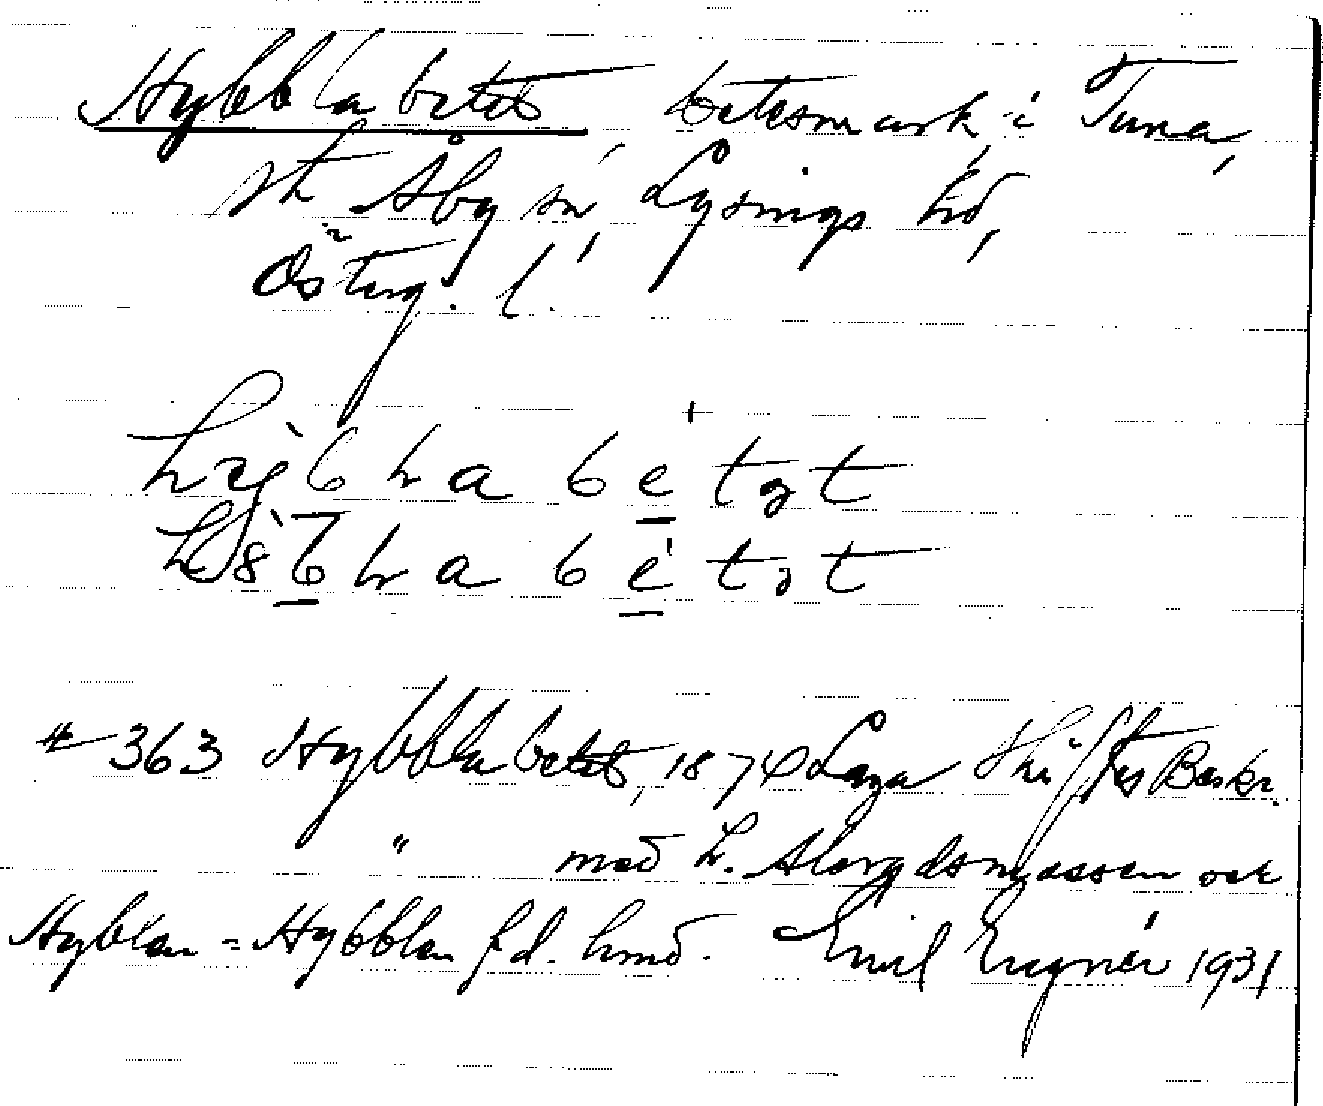 Hybblabetet, betesmark, i Tuna,
sk Åby sn, Lysings hd,
Österg. l.
b h a b e t t
b h a b e t t
363 Hybblabetet, 1874 Laga Skiftes Beskr.
" med L. Alorgdsmossen och
Hyblan = Hybblan f.d. hmd. Emil Engnér 1931